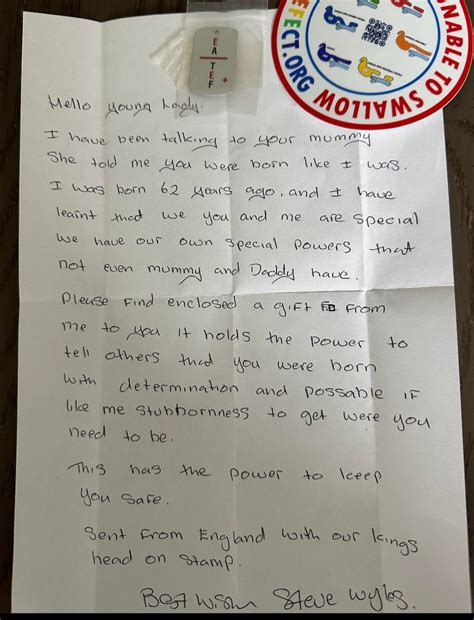 EA
TEF
+
EFECT.ORG
UNABLE TO SWALLOW
Hello young Lady.
I have been talking to your mummy
She told me you were born like I was.
I was born 62 years ago, and I have
learnt that we you and me are special
we have our own special powers that
not even mummy and Daddy have.
Please find enclosed a gift from
me to you it holds the power to
tell others that you were born
with determination and possable if
like me stubbornness to get were you
need to be.
This has the power to keep
you safe.
Sent from England with our kings
head on stamp.
Best wishes Steve Wyles.